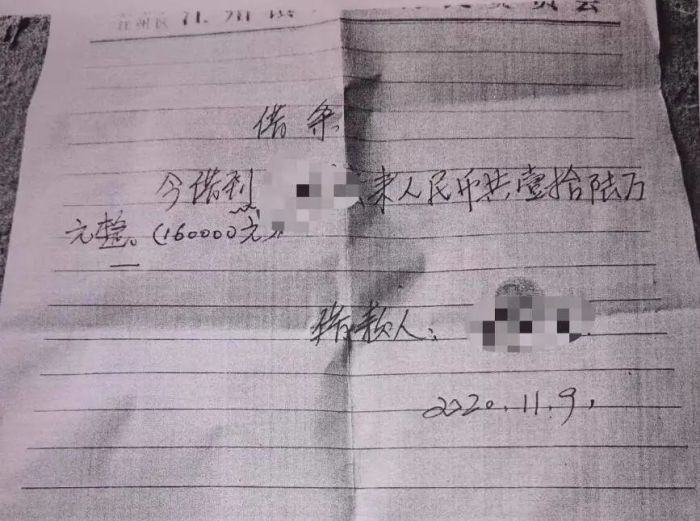 借条
今借到 来人民币共壹拾陆万
元整。(160000元)
借款人：
2020.11.9.